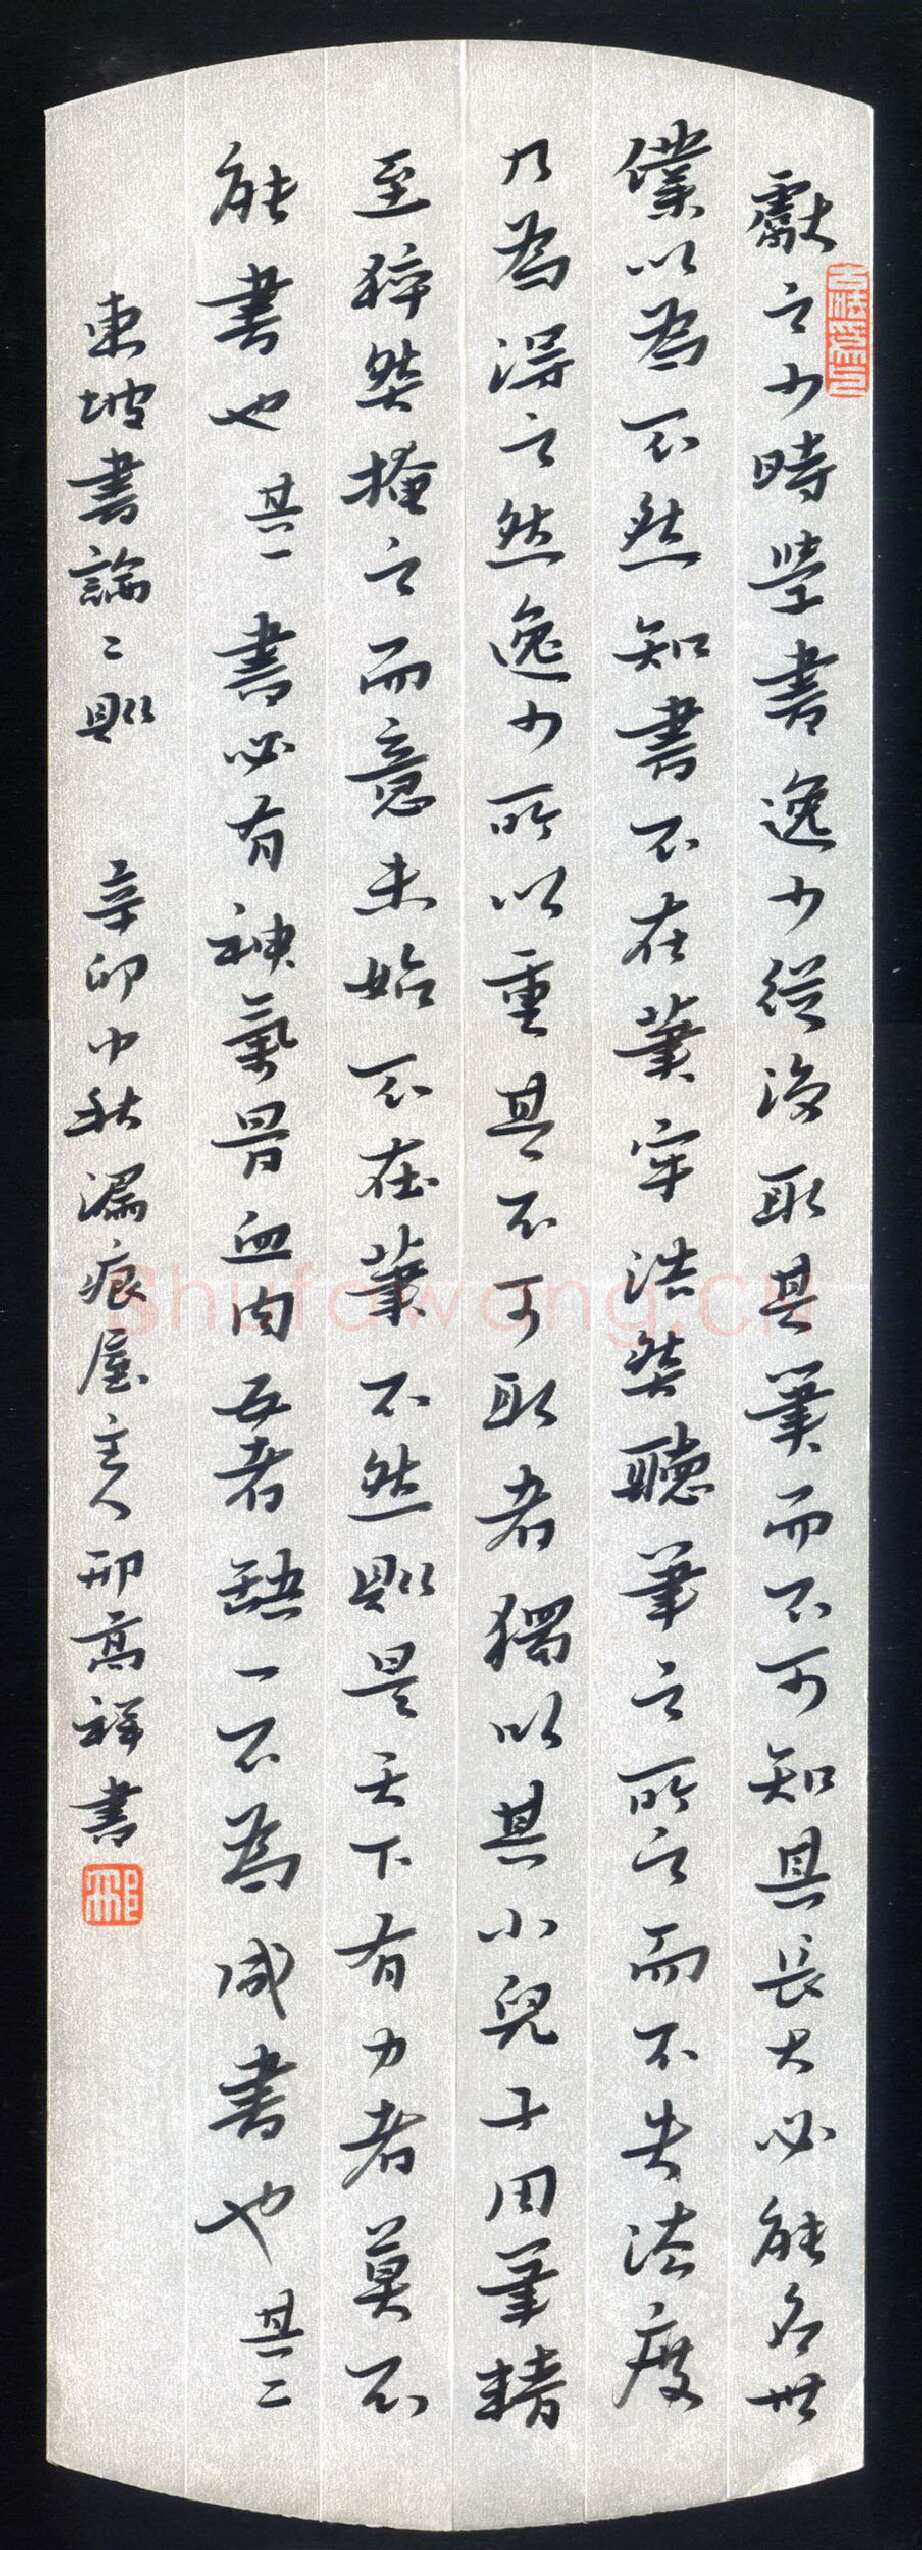 獻之少時學書逸少從後取其筆而不可知其長大必能名世
僕以為不然知書不在筆牢浩然聽筆之所之而不失法度
乃為得之然逸少所以重其不可取者獨以其小兒子用筆精
至猝然掩之而意未始不在筆不然則是天下有力者莫不
能書也 其一 書必有神氣骨血肉五者缺一不為成書也 其二
東坡書論二則 辛卯中秋漏痕屋主人邢高祥書
邢
Shufawang.cn